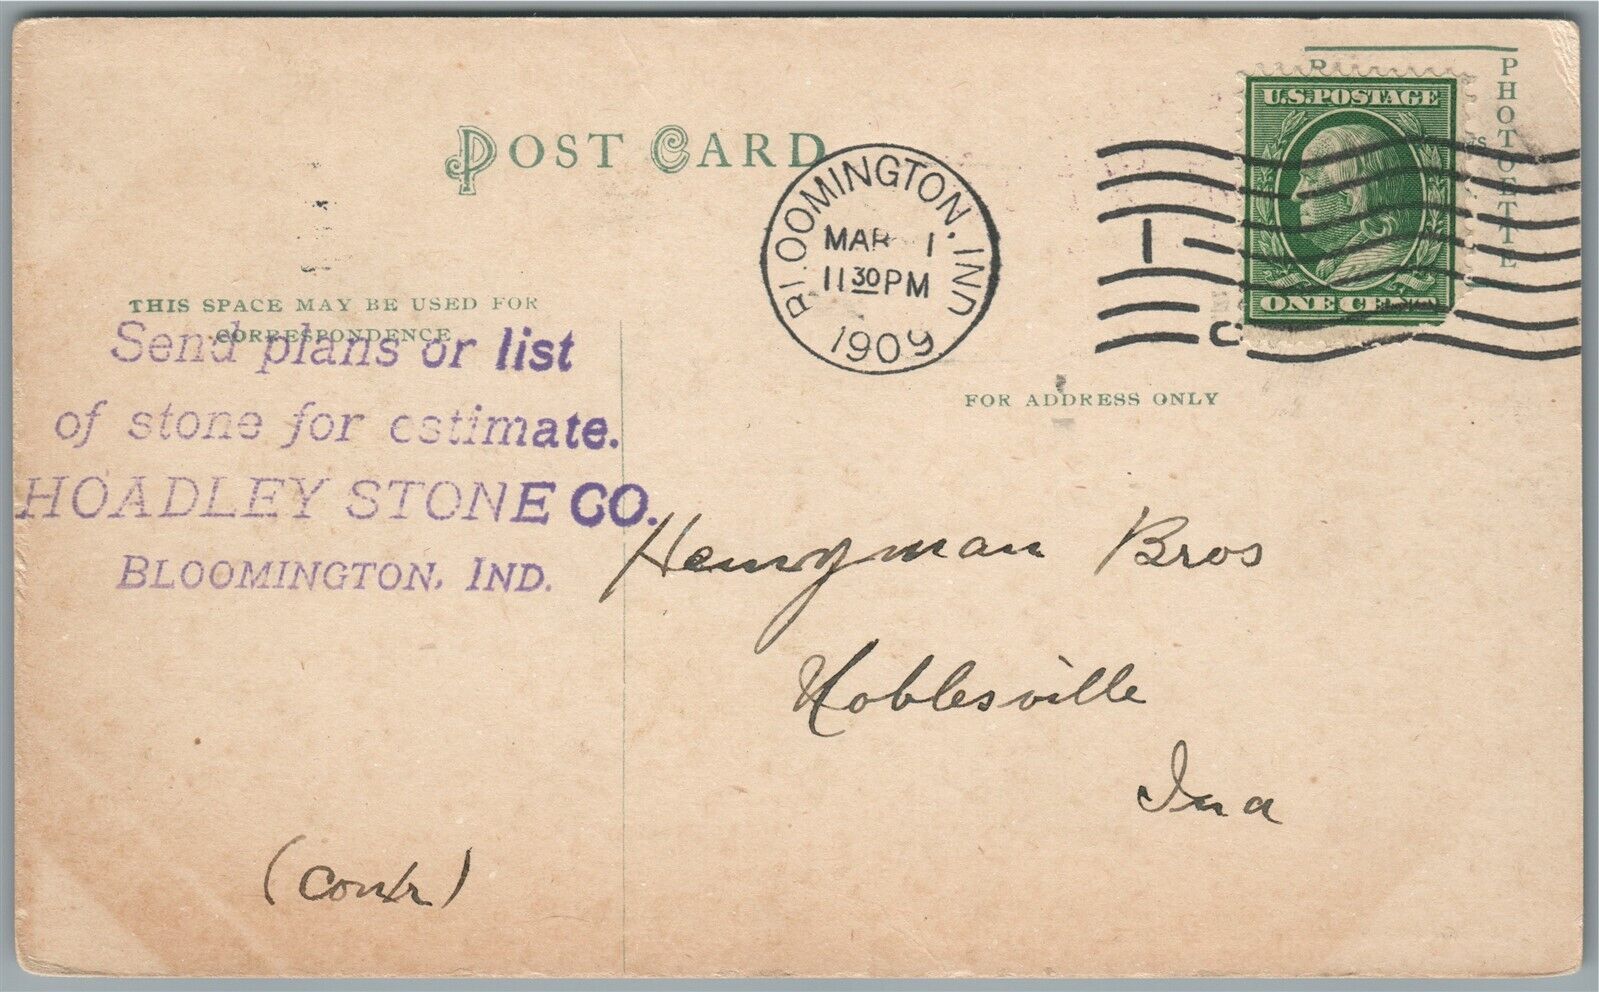 POST CARD
PHOTOETTE
U.S. POSTAGE
ONE CE
BLOOMINGTON, IND.
MAR 1
11 30 PM
1909
1
C
THIS SPACE MAY BE USED FOR
CORRESPONDENCE
FOR ADDRESS ONLY
Send plans or list
of stone for estimate.
HOADLEY STONE CO.
BLOOMINGTON, IND.
Bros
Noblesville
Ind
(Contr)